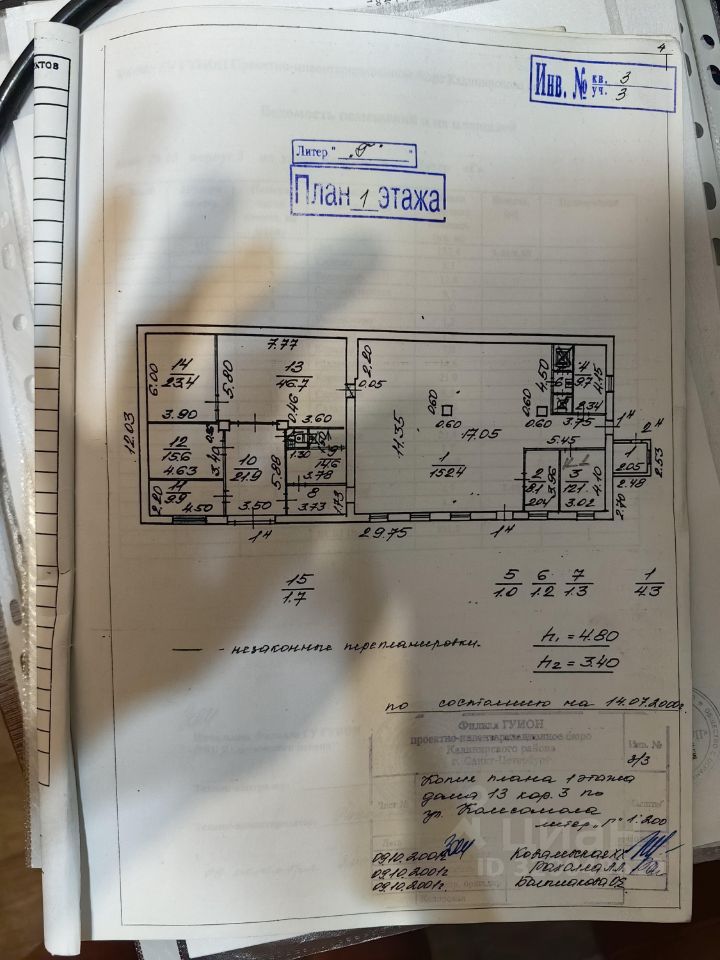 4
Инв. № кв. 3
уч. 3
Литер "Г"
План 1 этажа
7.77
14
23.4
6.00
5.80
13
46.7
2.20
0.05
4.50
4
9.7
4.15
3.90
0.46
3.60
0.60
0.60
0.60
0.60
2.34
3.75
1ч
2ч
12.03
12
15.6
4.63
3.40
10
21.9
5.88
1.30
9
14.6
3.78
11.35
17.05
1
152.4
5.45
1
2.05
2.53
2.48
2.70
11
9.9
2.20
4.50
3.50
8
3.73
1.73
2
8.1
2.04
3.96
3
12.1
3.02
4.10
1ч
29.75
1ч
15
1.7
5
1.0
6
1.2
7
1.3
1
4.3
— - незаконные перепланировки.
h1 = 4.80
h2 = 3.40
по состоянию на 14.07.2000г.
Филиал ГУИОН
проектно-инвентаризационное бюро
Калининского района
г. Санкт-Петербург
Инв. №
3/3
Копия плана 1 этажа
дома 13 кор. 3 по
ул. Комсомола
литер "Г" 1:200
циан
ID
09.10.2001г
09.10.2001г
09.10.2001г